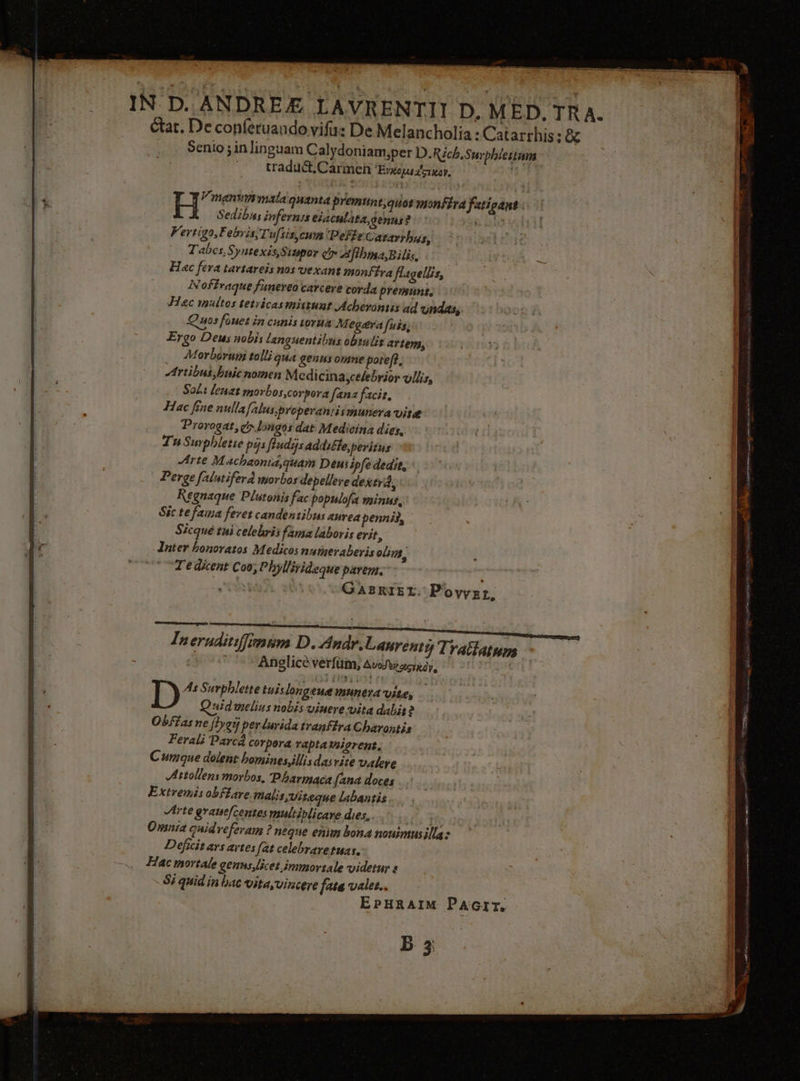 IN D. ANDREÆ LAVRENTII D. MED. TRA.
ctat. De conſeruando viſu: De Melancholia: Catarrhis: &
Senio; in linguam Calydoniam, per D. Rich. Surphlettum
traduct. Carmen
HV manum mala quanta premunt, quot monſtra fatigant
Sedibus infernis eiaculata, genus?
Vertigo, Febris, Tuſsis, cum Peſte Catarrhus,
Tabes, Syntexis, Stupor & Aſthma, Bilis,
Hac fera tartareis nos vexant monſtra flagellis,
Noſtraque funereo carcere corda premunt,
Hac multos tetricas mittunt Acherontis ad vndas,
Quos fouet in cunis torua Megæra ſuis,
Ergo Deus nobis languentibus obtulit artem,
Morborum tolli qua genus omne poteſt,
Artibus, huic nomen Medicina, celebrior vllis,
Sola leuat morbos, corpora ſana facit,
Hac ſine nulla ſalus, properantis munera vitæ
Prorogat, & longos dat Medicina dies,
Tu Surphlette pijs ſtudijs addicte, peritus
Arte Machaonia, quam Deus ipſe dedit,
Perge ſalutiferâ morbos depellere dextrâ,
Regnaque Plutonis fac populoſa minus,
Sic te fama feret candentibus aurea pennis,
Sicque tui celebris fama laboris erit,
Inter honoratos Medicos numeraberis olim,
Te dicent Coo, Phyllirideque parem.
GABRIEL POVVEL,
In eruditiſſimum D. Andr. Laurentij Tractatum
Anglicè verſum,
DAs Surphlette tuis longeua munera vitæ,
Quid melius nobis viuere vita dabis?
Obſtas ne ſtygij per lurida tranſtra Charontis
Ferali Parcâ corpora rapta migrent.
Cumque dolent homines, illis das rite valere
Attollens morbos, Pharmaca ſana doces
Extremis obſtare malis, vitæque labantis
Arte graueſcentes multiplicare dies,
Omnia quid referam? neque enim bona nouimus illa:
Deficit ars artes ſat celebrare tuas,
Hac mortale genus, licet immortale videtur:
Si quid in hac vita, vincere fata valet.
EPHRAIM PAGIT.
B 3